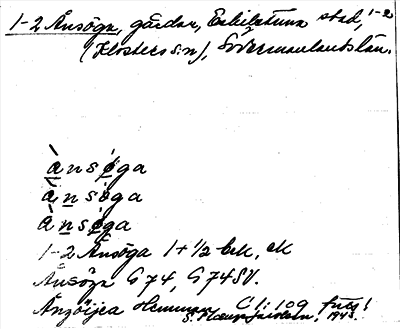 1-2 Ånsöga, gårdar, Eskilstuna stad, 1-2
(Klosters s:n), Södermanlands län.
ànsǿga
ànsöga
ànsøga
1-2 Ånsöga 1+1/2 bck, ek
Ånsöga G 74, G 74 SV.
Hemman C 1:109
1945.